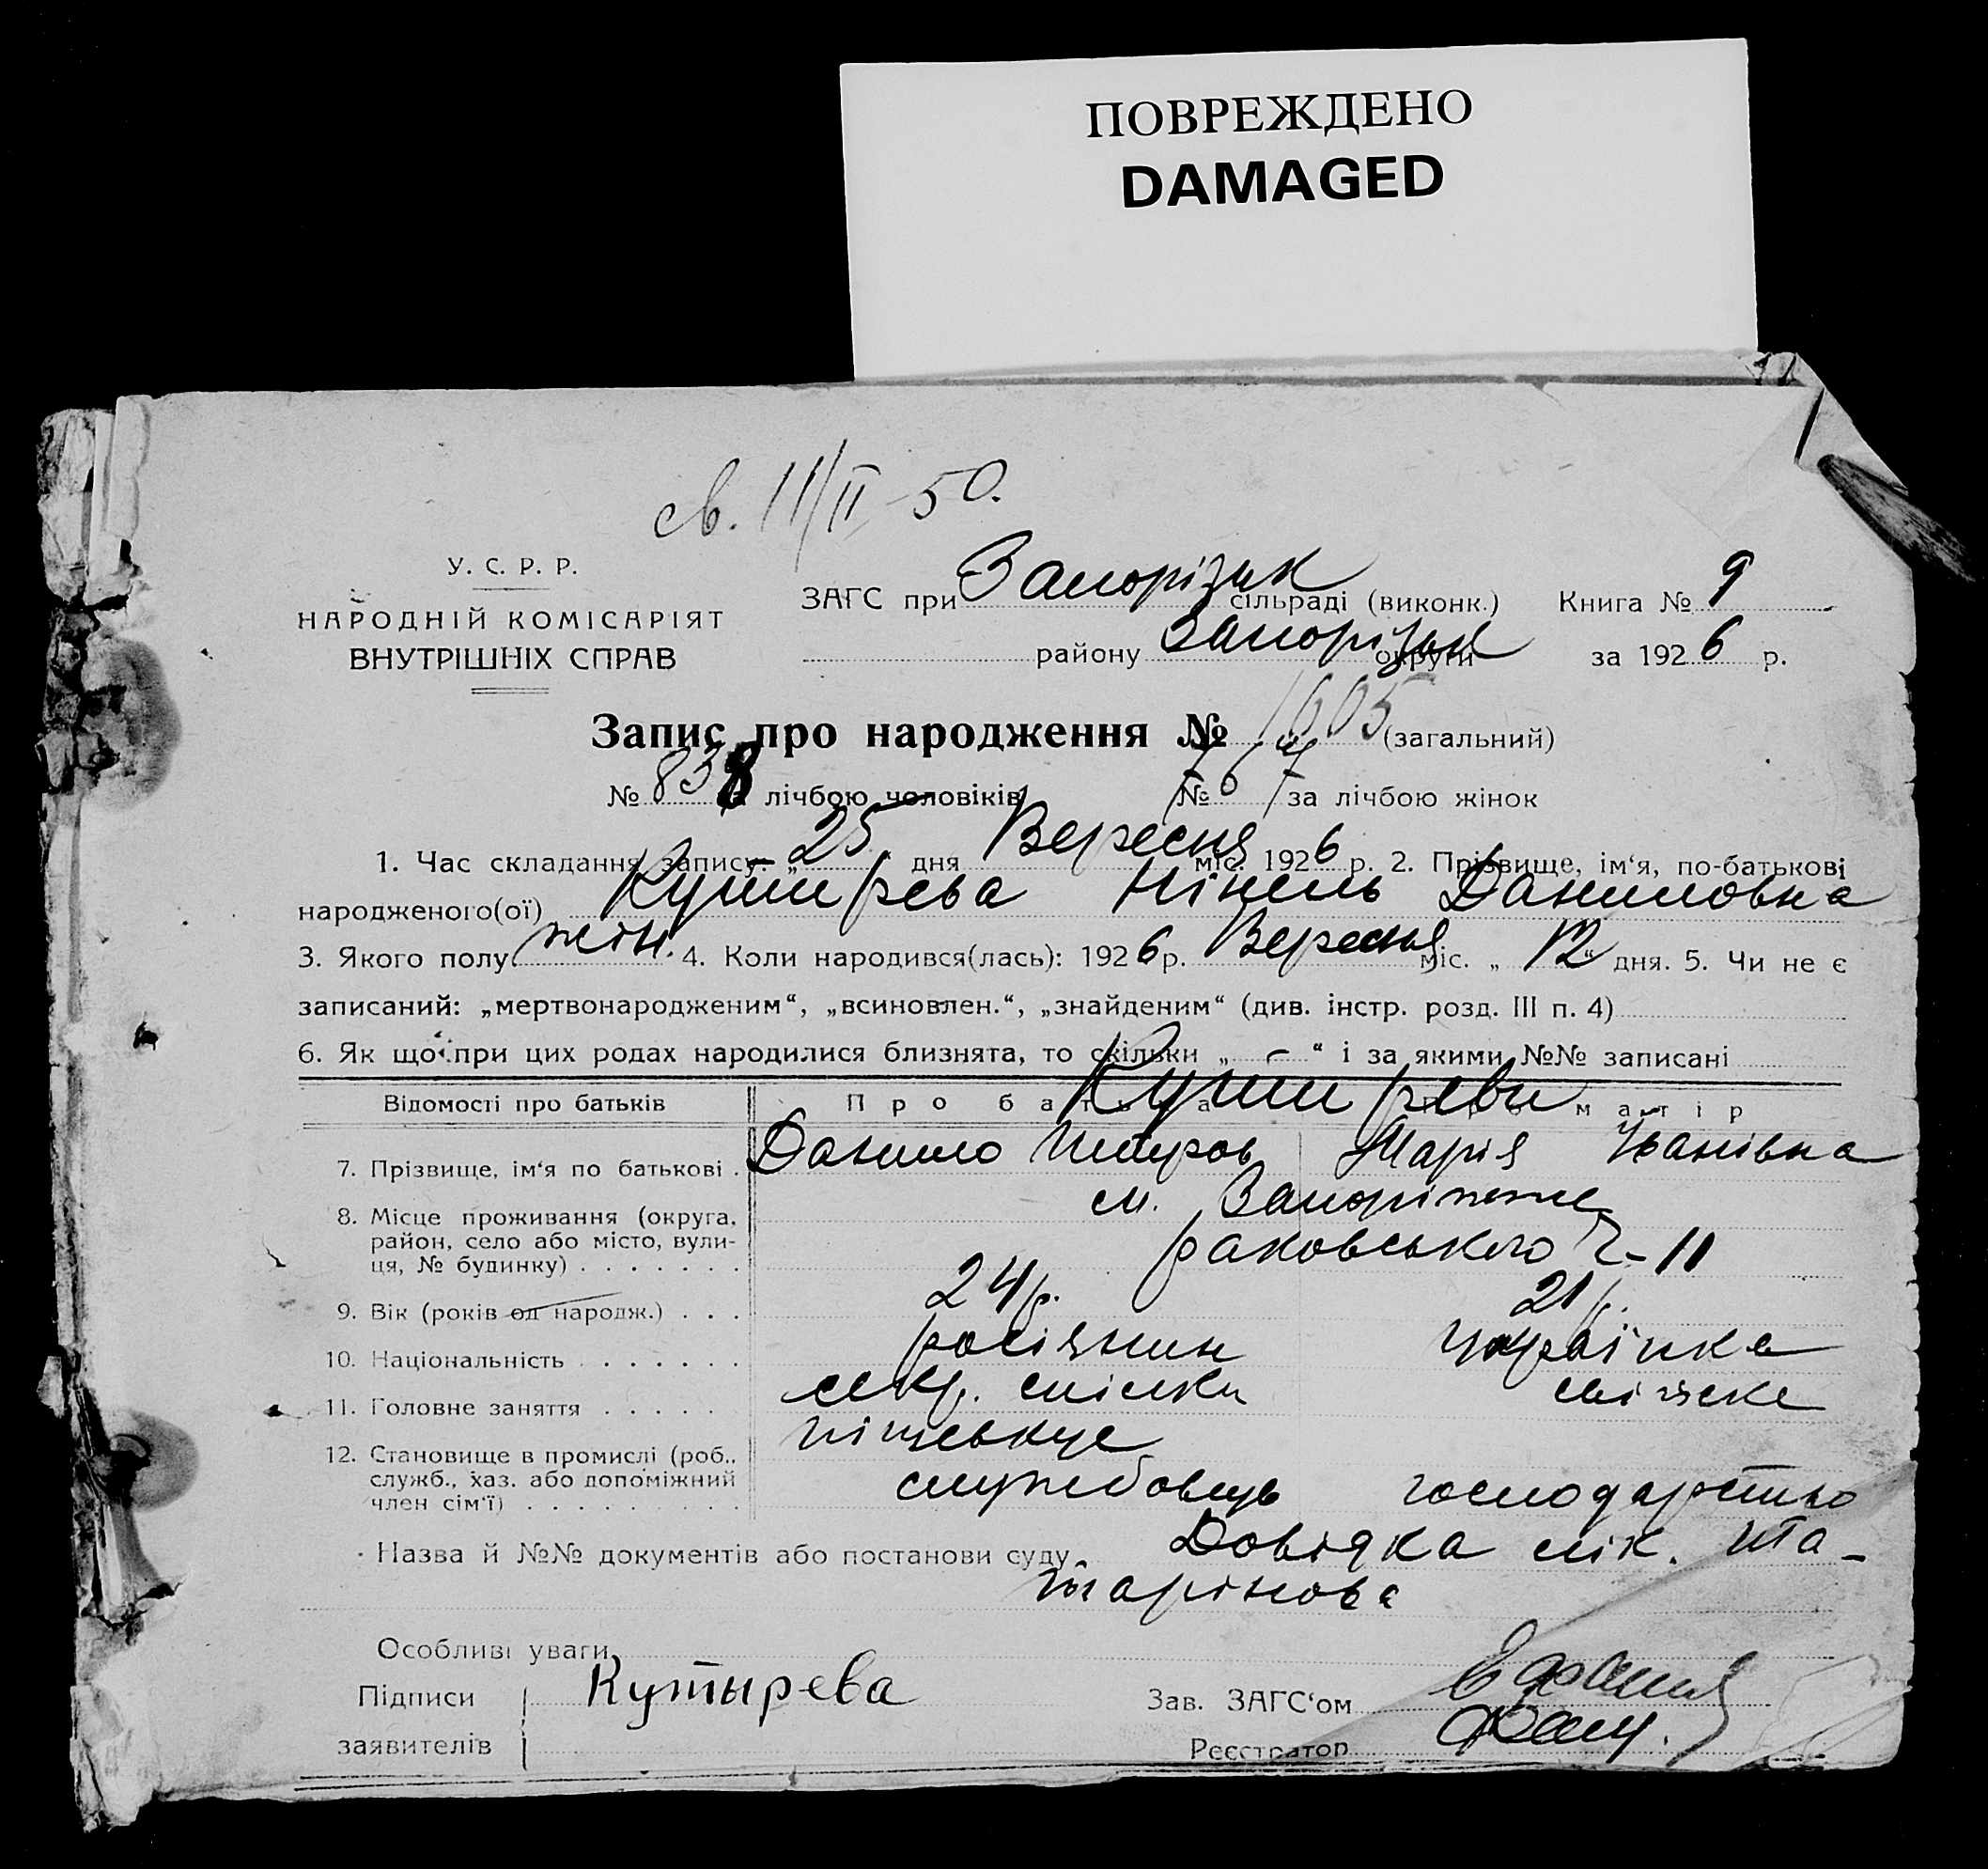 ПОВРЕЖДЕНО
DAMAGED
св. 11/II-50.
У. С. Р. Р.
НАРОДНІЙ КОМІСАРІЯТ
ВНУТРІШНІХ СПРАВ
ЗАГС при Запорізьк сільраді (виконк.) Книга № 9
району Запорізьк округи за 1926 р.
Запис про народження № 1605 (загальний)
№ 838 лічбою чоловіків № 767 за лічбою жінок
1. Час складання запису: „25 дня Вересня міс. 1926 р. 2. Прізвище, ім‘я, по-батькові
народженого(ої) Кутирева Нінель Даниловна
3. Якого полу жін. 4. Коли народився(лась): 1926 р. Вересня міс. „12“ дня. 5. Чи не є
записаний: „мертвонародженим“, „всиновлен.“, „знайденим“ (див. інстр. розд. III п. 4)
6. Як що при цих родах народилися близнята, то скільки „ — “ і за якими №№ записані
Відомості про батьків Про батька Про матір
Кутиреви
7. Прізвище, ім‘я по батькові . Данило Петров Марія Іванівна
8. Місце проживання (округа, м. Запоріжже
район, село або місто, вули-
ця, № будинку) . . . . . . . Раковського 2-11
9. Вік (років од народж.) . . . 24 р. 21 р.
10. Національність . . . . . . . росіянин українка
11. Головне заняття . . . . . секр. спілки
12. Становище в промислі (роб.,
служб., хаз. або допоміжний
член сім‘ї) . . . . . . . . . службовець господарство
Назва й №№ документів або постанови суду Довідка лік. Шта-
тарінова
Особливі уваги
Підписи Кутырева Зав. ЗАГС‘ом
заявителів Реєстратор